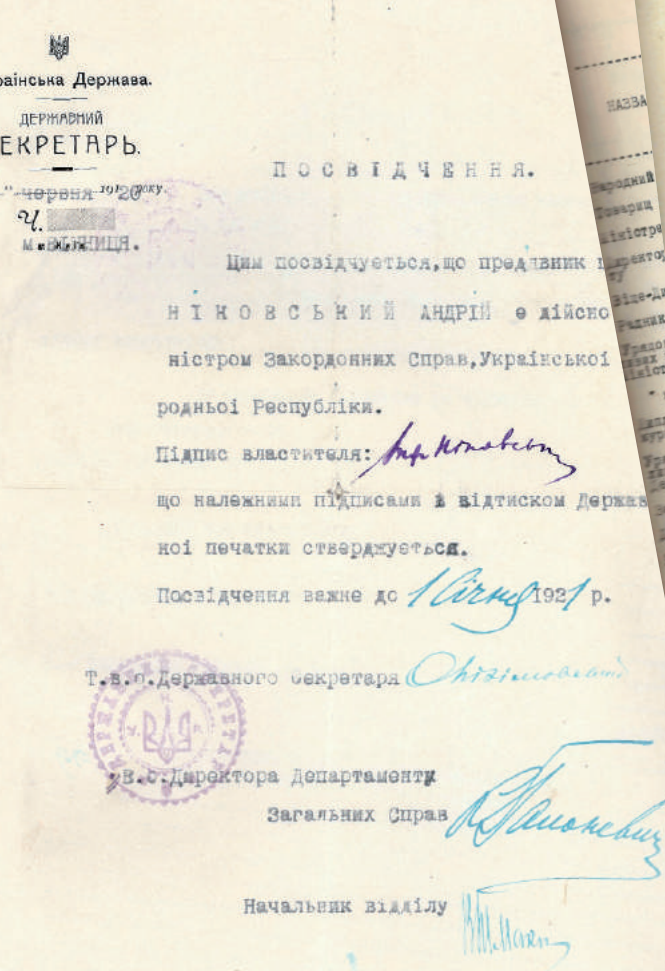 раїнська Держава.
ДЕРЖАВНИЙ
ЕКРЕТАРЬ.
" червня 1920 року.
Ч.
м. ВІННИЦЯ.
ПОСВІДЧЕННЯ.
Цим посвідчується, що предявник
НІКОВСЬКИЙ АНДРІЙ е дійсно
ністром Закордонних Справ, Української
родньоі Республіки.
Підпис властителя:
що належними підписами і відтиском Держав
ноі печатки стверджується.
Посвідчення важне до 1 Січня 1921 р.
Т.в.о. Державного Секретаря
ДЕРЖАВНИЙ СЕКРЕТАР
В.о. Директора Департаменту
Загальних Справ
Начальник відділу
НАЗВА
Народний
Товариш
Міністра
Директор
Віце-Ди
Радник